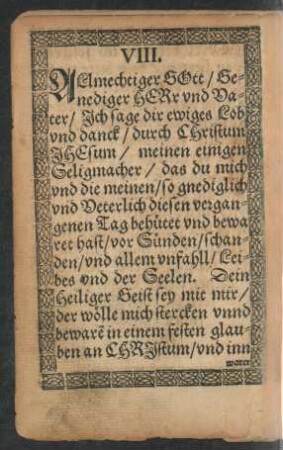 VIII.
ALmechtiger GOtt / Ge-
nediger HERr vnd Va-
ter / Ich sage dir ewiges Lob
vnd danck / durch CHristum
JHEsum / meinen einigen
Seligmacher / das du mich
vnd die meinen / so gnediglich
vnd Veterlich diesen vergan-
genen Tag behütet vnd bewa
ret hast / vor Sünden / schan-
den / vnd allem vnfahll / Lei-
bes vnd der Seelen. Dein
Heiliger Geist sey mit mir /
der wölle mich stercken vnnd
bewarē in einem festen glau-
ben an CHRJstum / vnd inn